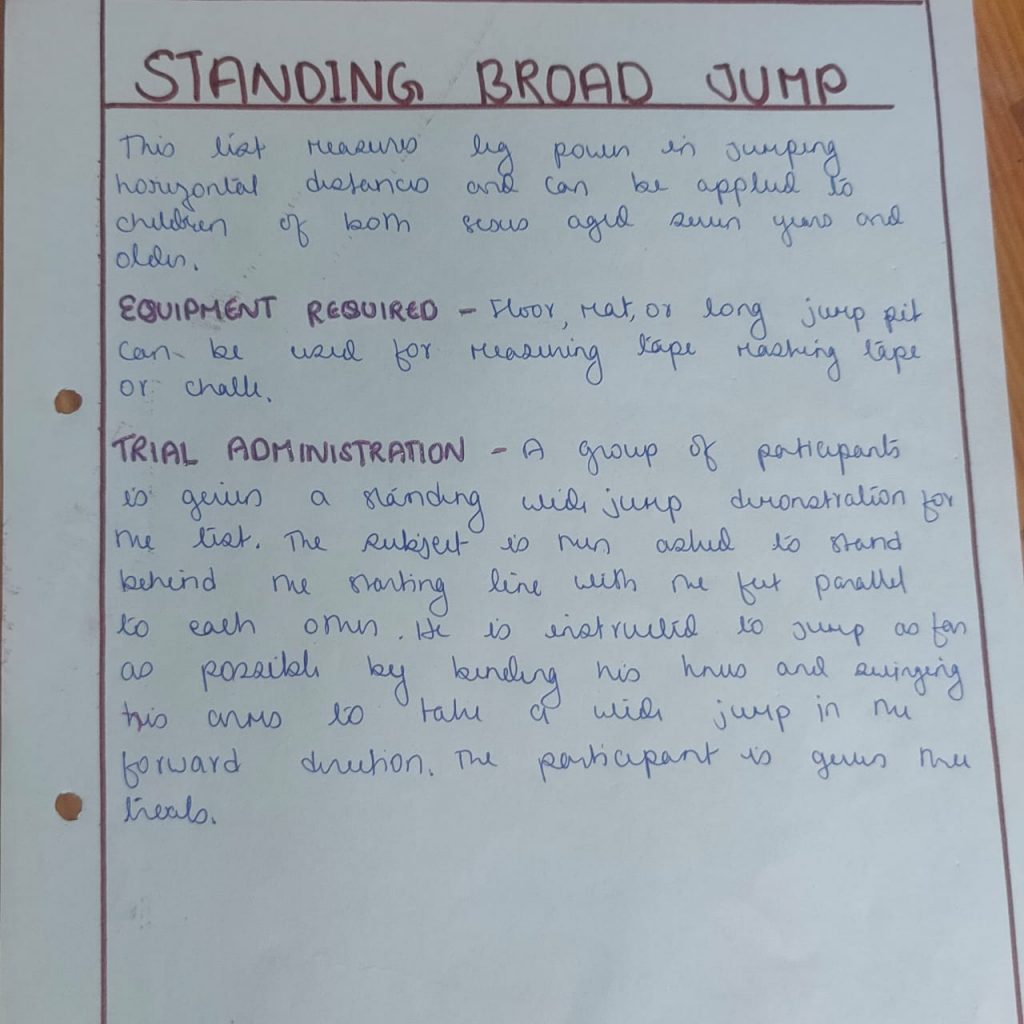 STANDING BROAD JUMP
This test measures leg power in jumping
horizontal distances and can be applied to
children of both sexes aged seven years and
older.
EQUIPMENT REQUIRED - Floor, mat, or long jump pit
can be used for measuring tape marking tape
or chalk.
TRIAL ADMINISTRATION - A group of participants
is given a standing wide jump demonstration for
the test. The subject is then asked to stand
behind the starting line with the feet parallel
to each other. He is instructed to jump as far
as possible by bending his knees and swinging
his arms to take a wide jump in the
forward direction. The participant is given three
trials.